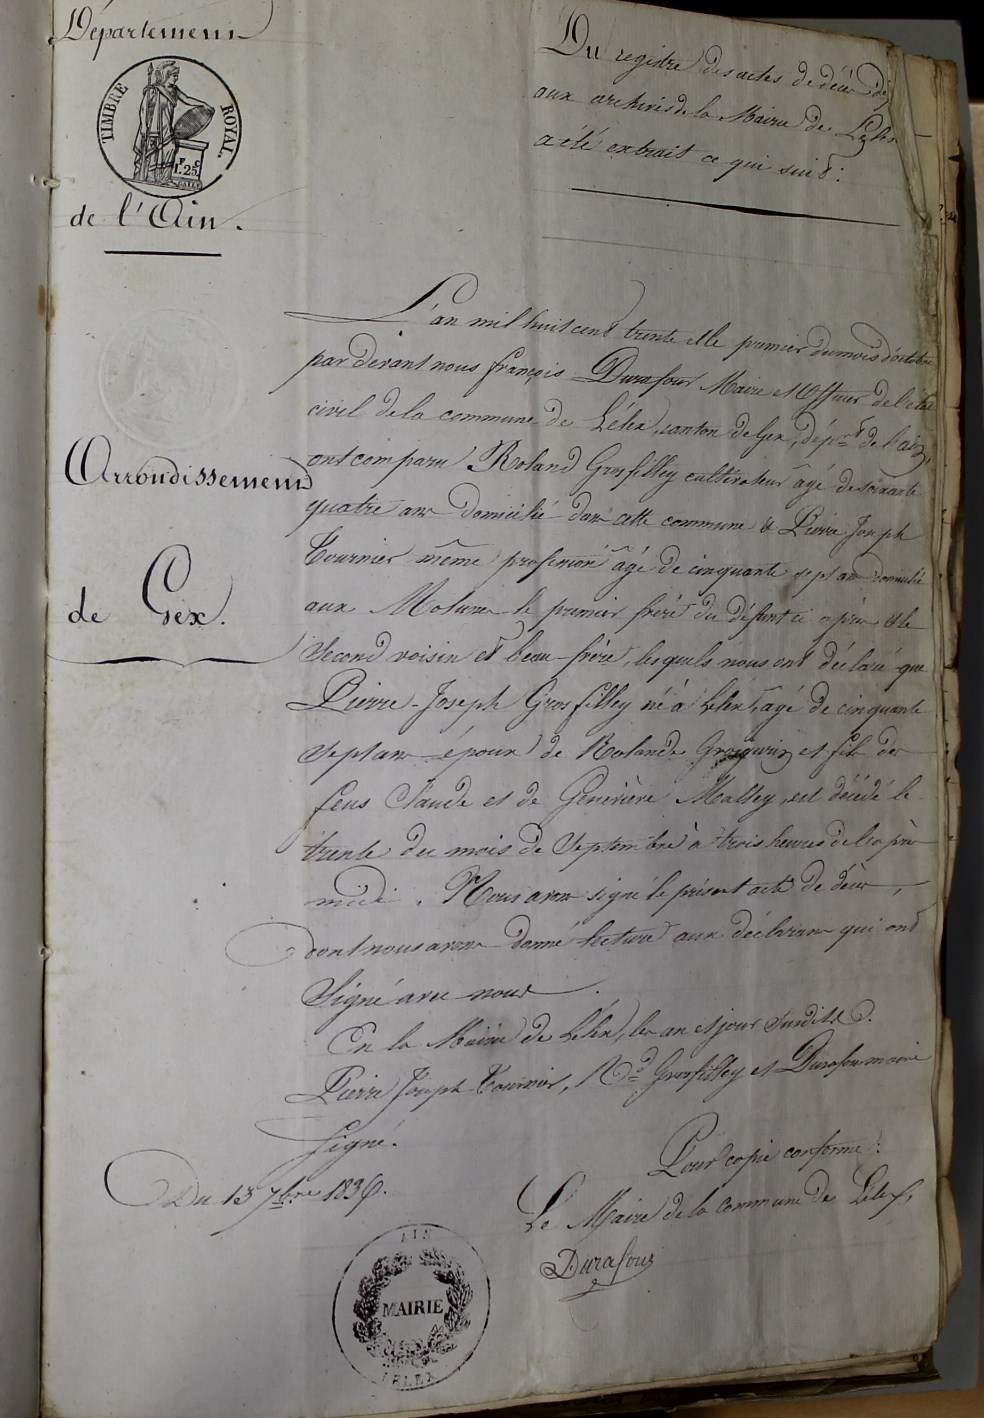 Département
TIMBRE ROYAL.
F C
1.25
de l'Ain.
Arrondissement
de Gex.
Du registre des actes de décès
aux archives de la Mairie de Lélex
a été extrait ce qui suit :
L'an mil huit cent trente et le premier du mois d'octobre
par devant nous françois Durafour Maire et officier de l'état
civil de la commune de Lélex, canton de Gex, dépmt de l'ain,
ont comparu Roland Grosfilley cultivateur âgé de soixante
quatre ans domicilié dans cette commune & Pierre Joseph
Tournier même profession âgé de cinquante sept ans domicilié
aux Molunes le premier frère du défunt ci après & le
Second voisin et beau-frère, lesquels nous ont déclaré que
Pierre-Joseph Grosfilley né à Lélex, agé de cinquante
Sept ans époux de Rolande et fils de
feus Claude et de Geneviève Malley, est décédé le
trente du mois de Septembre à trois heures de l'après
midi. Nous avons signé le présent acte de décès,
dont nous avons donné lecture aux déclarans qui ont
Signé avec nous.
En la Mairie de Lélex, les an et jour susdits.
Pierre Joseph Tournier, Rd Grosfilley et Durafour maire
Signé.
Pour copie conforme :
Du 13 7bre 1836.
Le Maire de la commune de Lélex,
Durafour
AIN
MAIRIE
LELEX